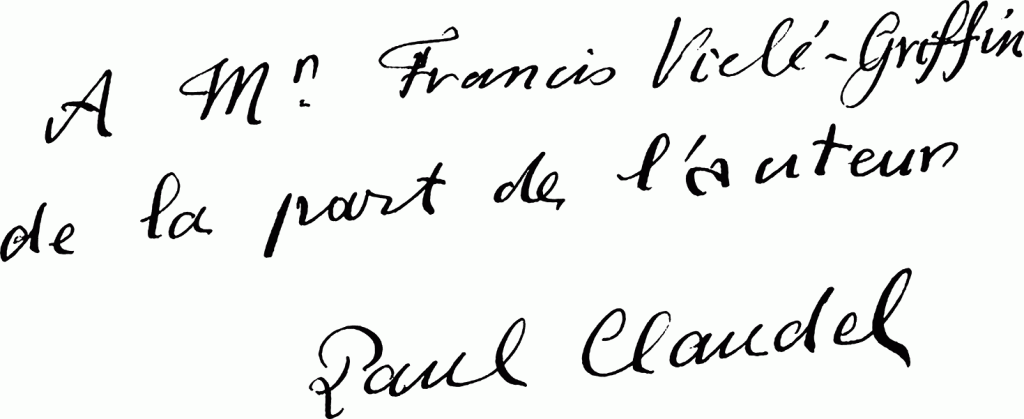 A Mr. Francis Vielé-Griffin
de la part de l'auteur
Paul Claudel